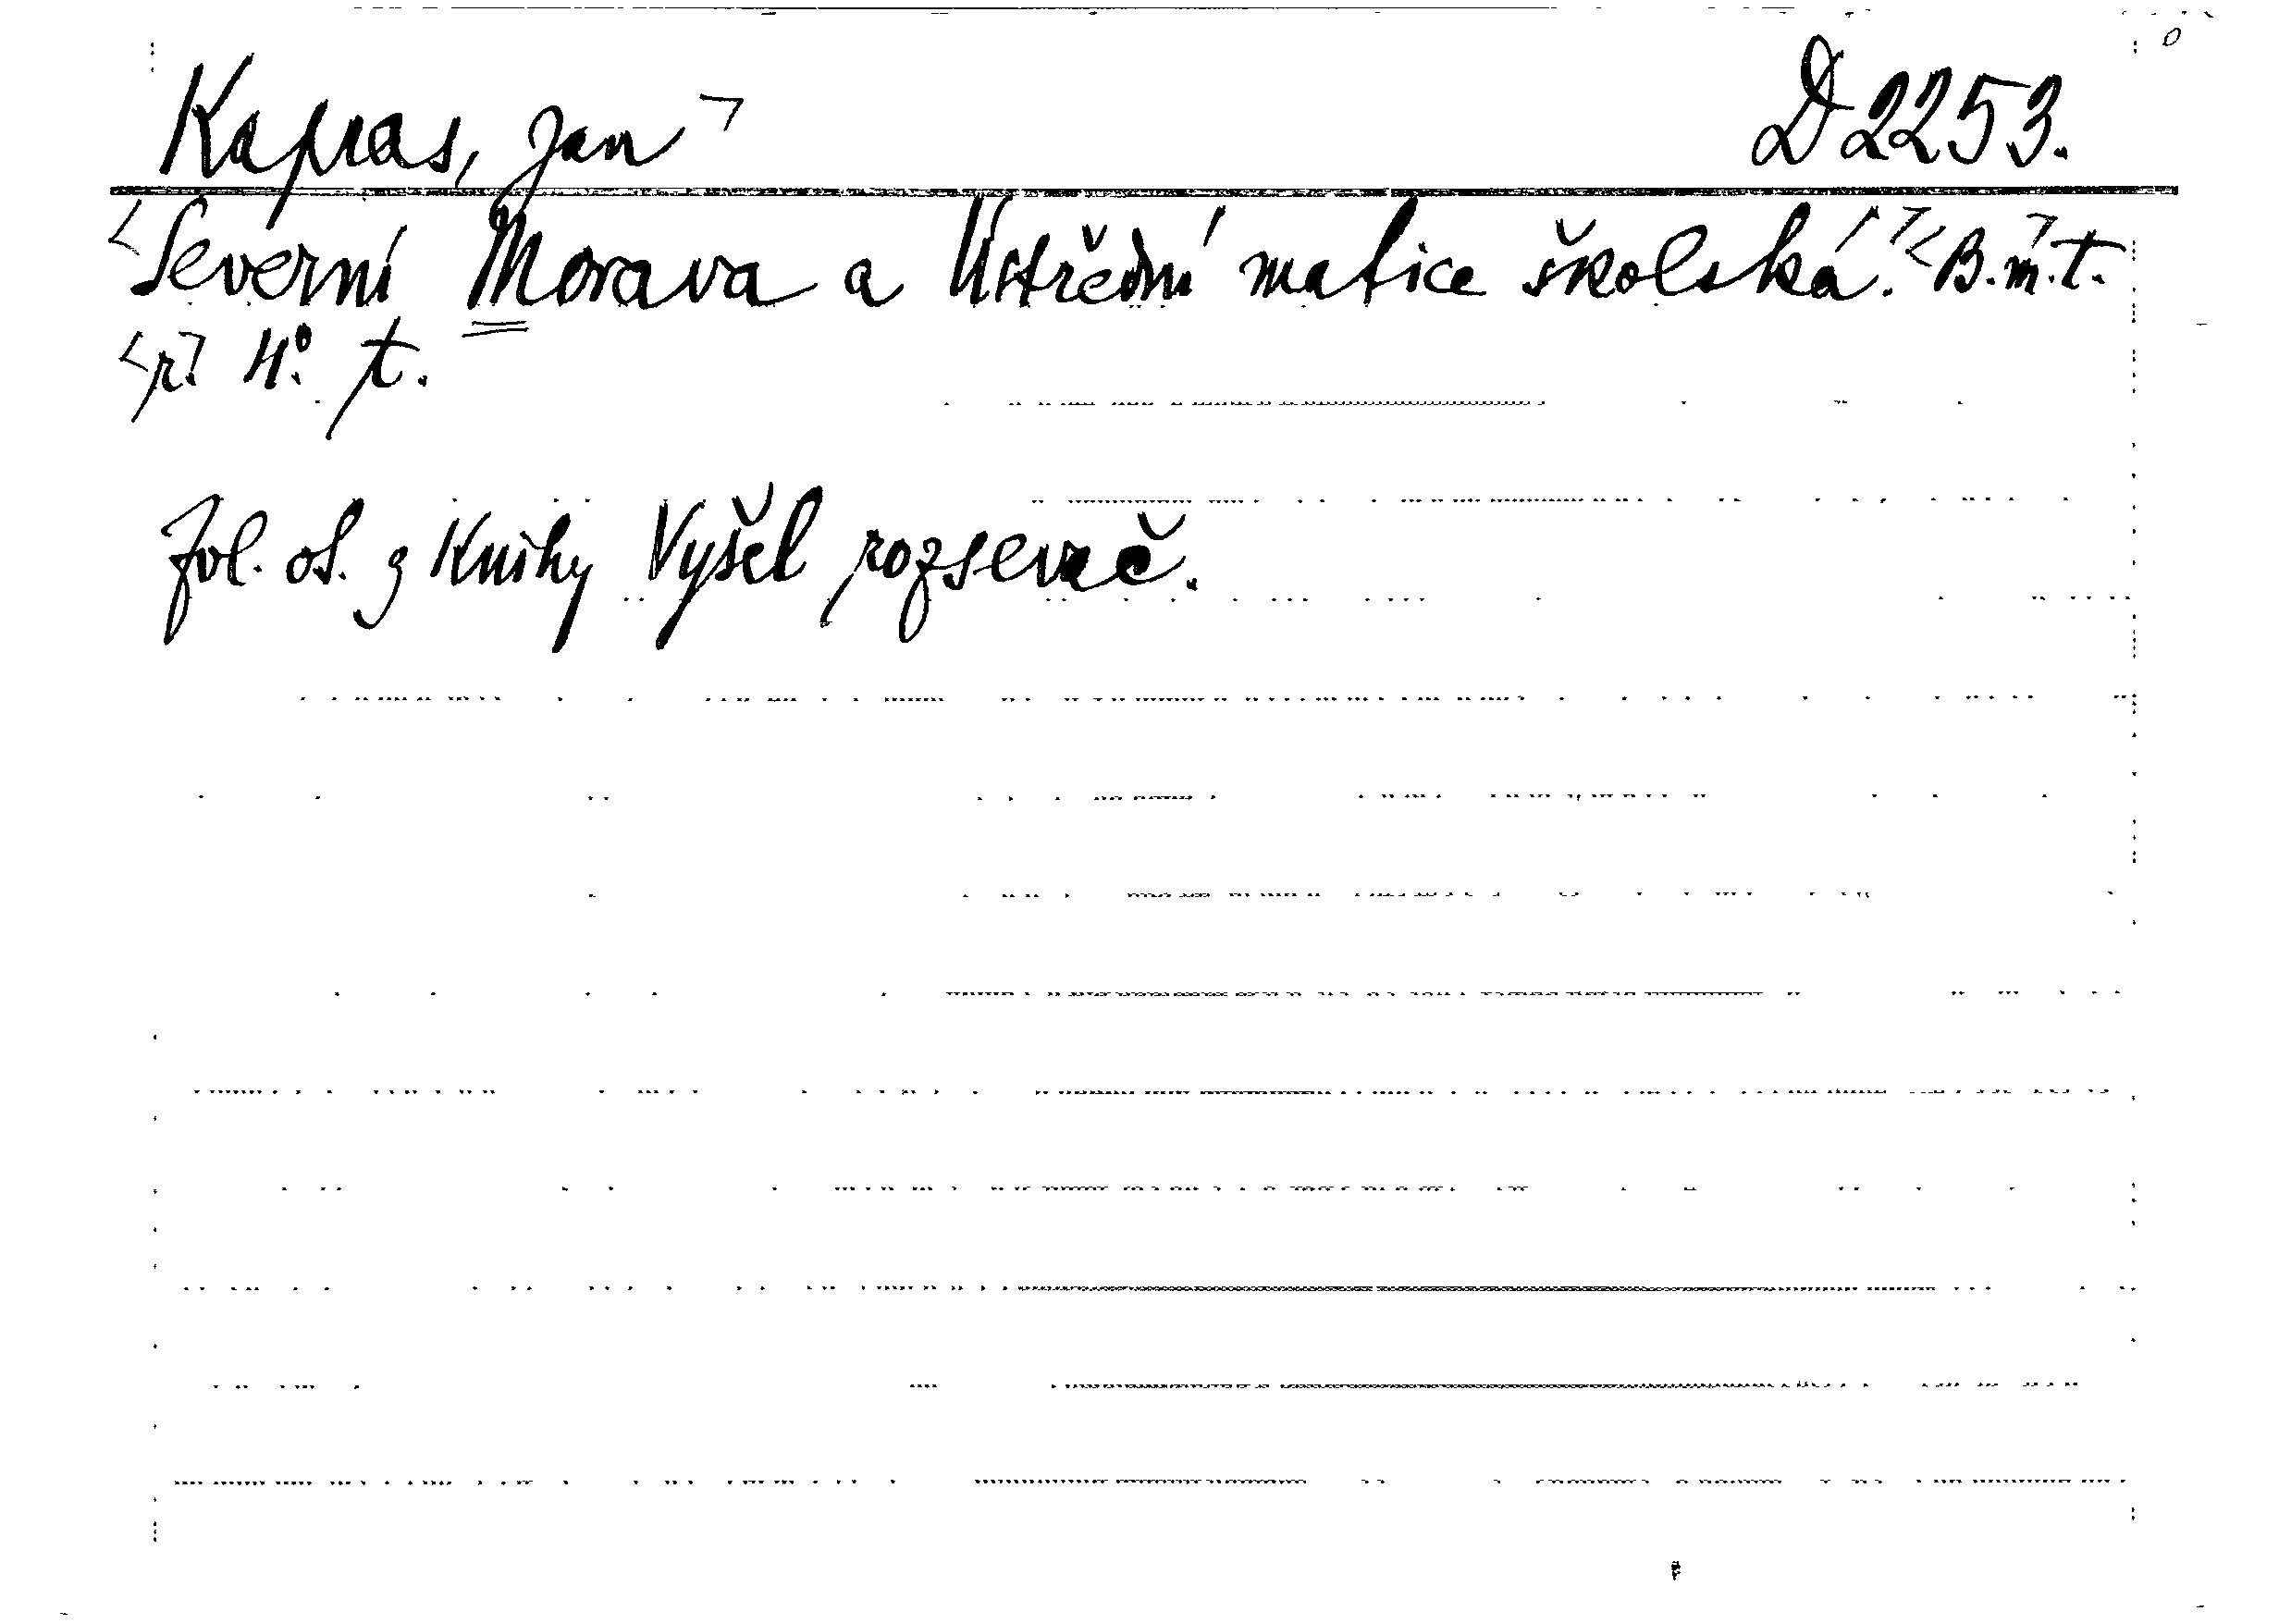 Kapras, Jan ㄱ D 2253.
<Severní Morava a Ústřední matice školská.ㄱ <B.m.ㄱ t.
<r.ㄱ 4°. t.
Zvl. ot. z knihy Vyšel rozsevač.